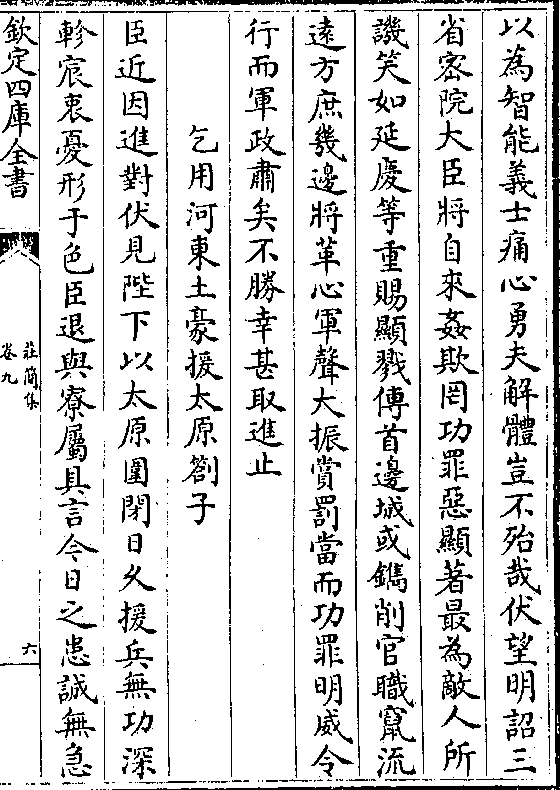 以為智能義士痛心勇夫解體豈不殆哉伏望明詔三
省密院大臣將自來姦欺罔功罪惡顯著最為敵人所
譏笑如延慶等重賜顯戮傳首邊城或鐫削官職竄流
遠方庶幾邊將革心軍聲大振賞罰當而功罪明威令
行而軍政肅矣不勝幸甚取進止
乞用河東土豪援太原劄子
臣近因進對伏見陛下以太原圍閉日久援兵無功深
軫宸衷憂形于色臣退與寮屬具言今日之患誠無急
欽定四庫全書
莊簡集
卷九
六